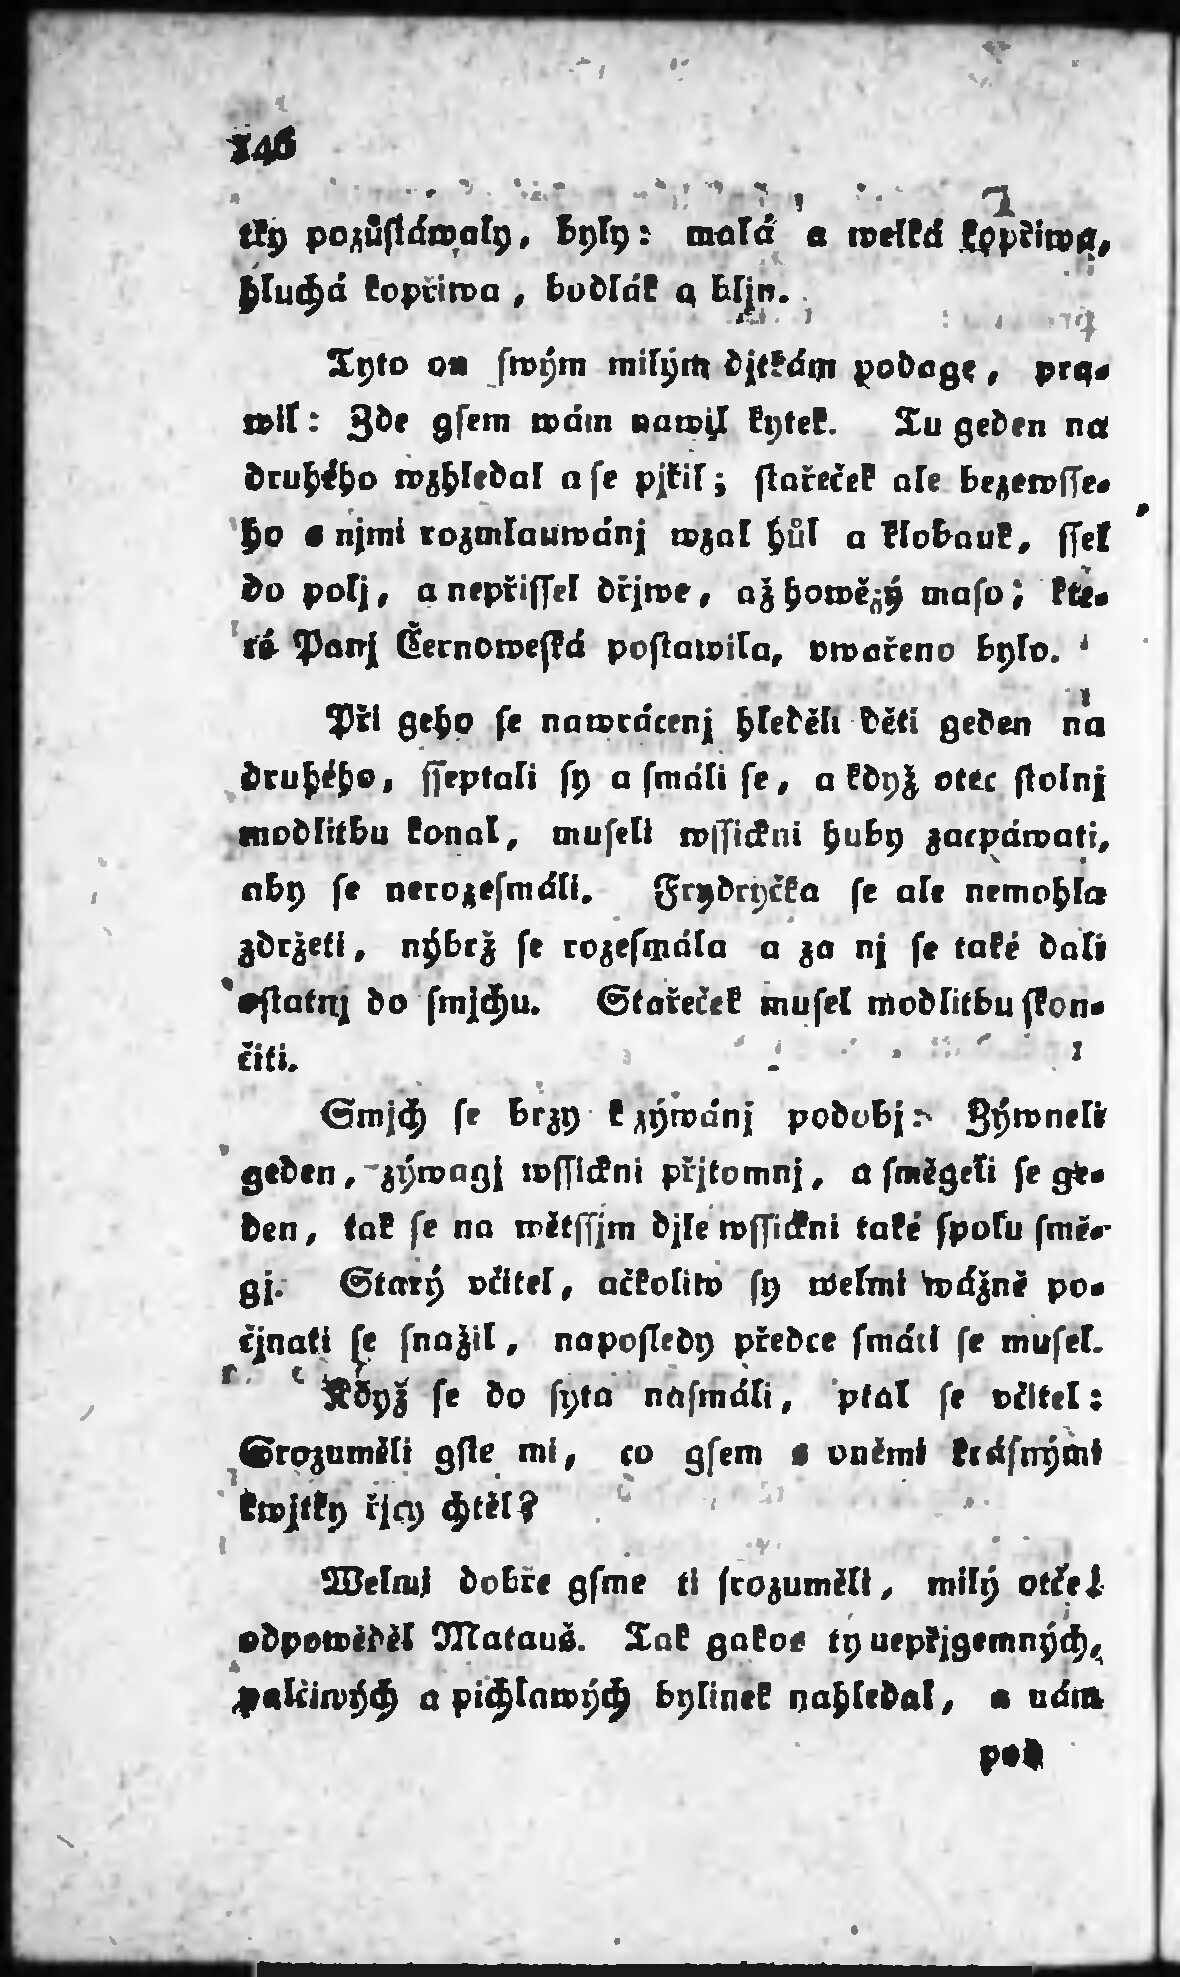 146
tky pozůſtáwaly, byly: malá a welká kopřiwa,
hluchá kopřiwa, bodlák a bljn.
Tyto on ſwým milým djtkám podage, pra-
wil: Zde gſem wám nawil kytek. Tu geden na
druhého wzhledal a ſe pjkil; ſtařeček ale bezewſſe-
ho s njmi rozmlauwánj wzal hůl a klobauk, ſſel
do polj, a nepřiſſel dřjwe, až howězý maſo; kte-
ré Panj Černoweſká poſtawila, vwařeno bylo.
Při geho ſe nawrácenj hleděli děti geden na
druhého, ſſeptali ſy a ſmáli ſe, a když otec ſtolnj
modlitbu konal, muſeli wſſickni huby zacpáwati,
aby ſe nerozeſmáli. Frydryčka ſe ale nemohla
zdržeti, nýbrž ſe rozeſmála a za nj ſe také dali
oſtatnj do ſmjchu. Stařeček muſel modlitbu ſkon-
čiti.
Smjch ſe brzy k zýwánj podobj: Zýwneli
geden, zýwagj wſſickni přjtomnj, a ſměgeli ſe ge-
den, tak ſe na wětſſjm djle wſſickni také ſpolu ſmě-
gj. Starý včitel, ačkoliw ſy welmi wážně po-
čjnati ſe ſnažil, napoſledy předce ſmáti ſe muſel.
Když ſe do ſyta naſmáli, ptal ſe včitel:
Srozuměli gſte mi, co gſem s oněmi kráſnými
kwjtky řjcy chtěl?
Welmi dobře gſme ti ſrozuměli, milý otče!
odpowěděl Matauš. Tak gakos ty nepřjgemných,
palčiwých a pichlawých bylinek nahledal, a nám
pod